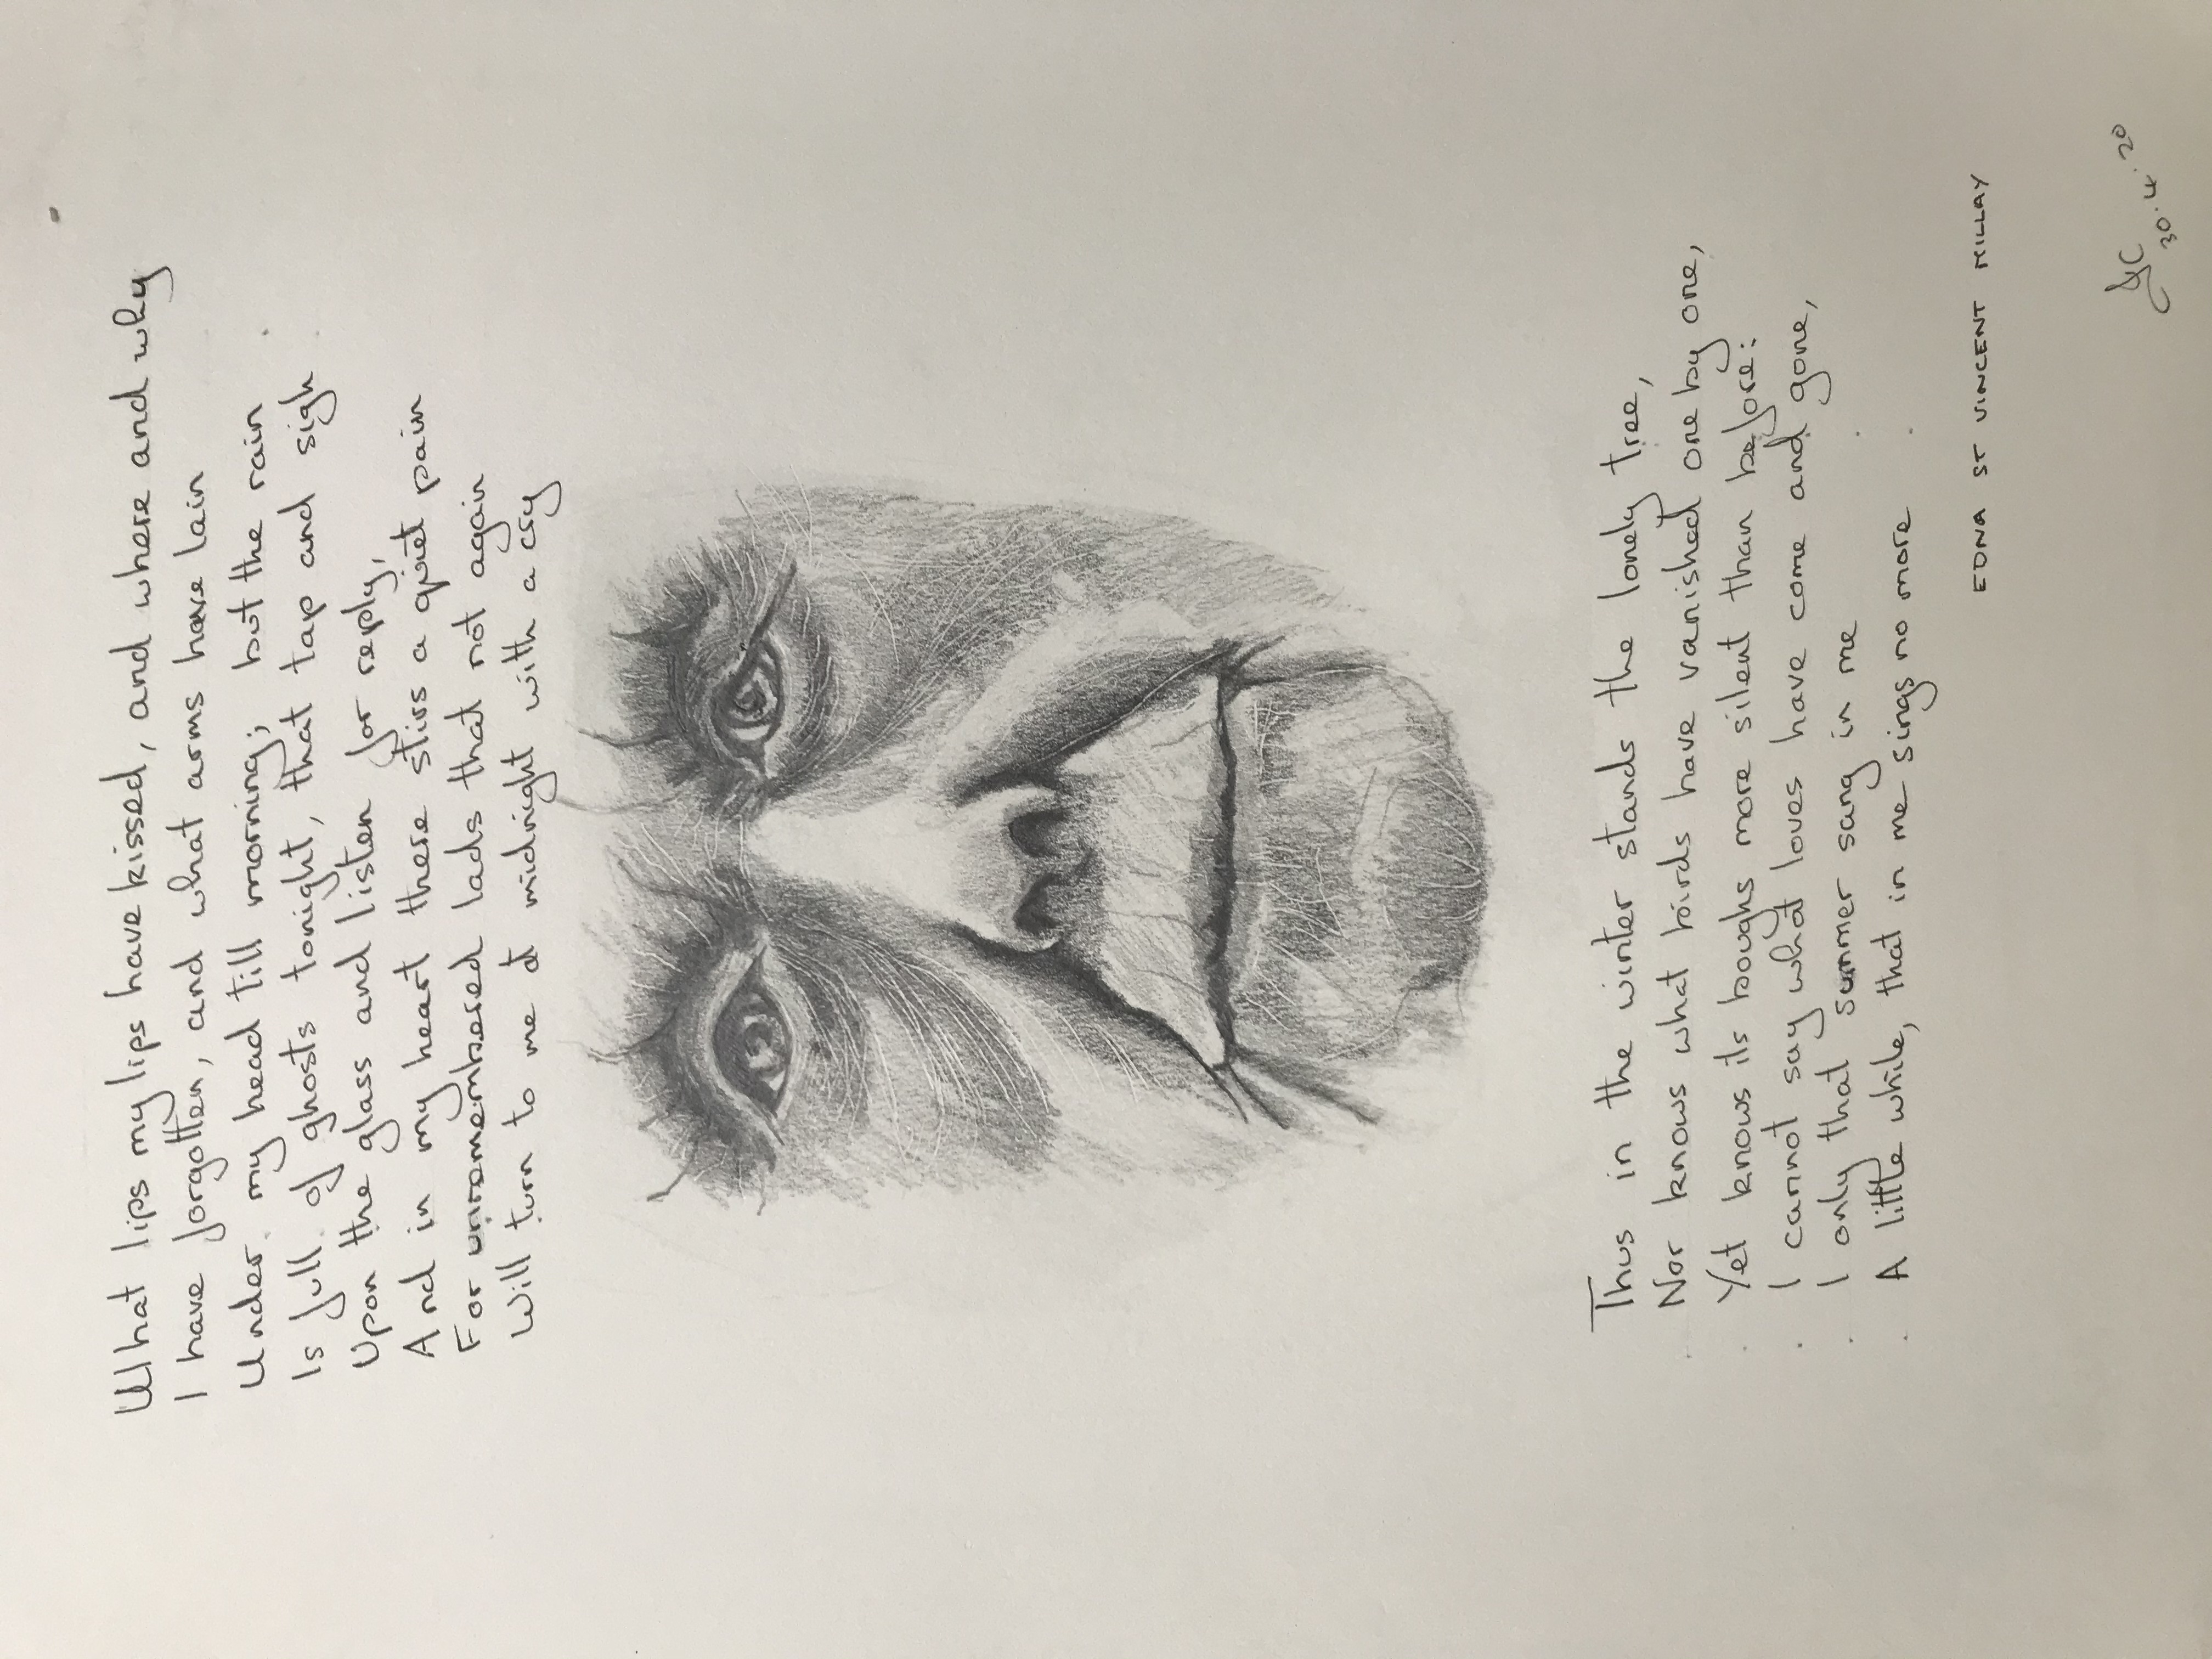 What lips my lips have kissed, and where and why
I have forgotten, and what arms have lain
Under my head till morning; but the rain
Is full of ghosts tonight, that tap and sigh
Upon the glass and listen for reply,
And in my heart there stirs a quiet pain
For unremembered lads that not again
Will turn to me at midnight with a cry
Thus in the winter stands the lonely tree,
Nor knows what birds have vanished one by one,
Yet knows its boughs more silent than before:
I cannot say what loves have come and gone,
I only that summer sang in me
A little while, that in me sings no more
EDNA ST VINCENT MILLAY
30.4.20